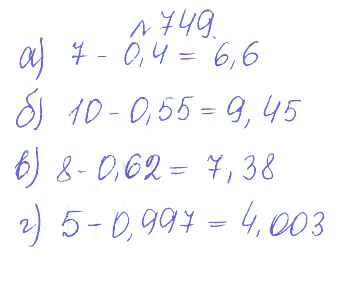 № 749.
а) 7 - 0,4 = 6,6
б) 10 - 0,55 = 9,45
в) 8 - 0,62 = 7,38
г) 5 - 0,997 = 4,003